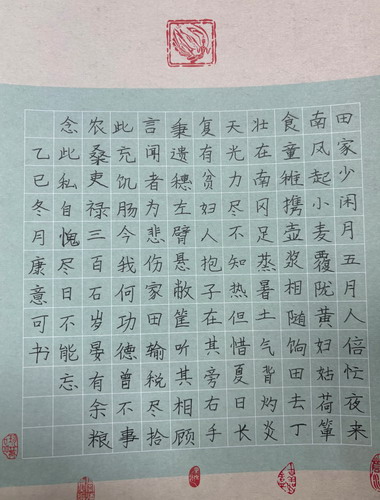 田家少闲月五月人倍忙夜来
南风起小麦覆陇黄妇姑荷箪
食童稚携壶浆相随饷田去丁
壮在南冈足蒸暑土气背灼炎
天光力尽不知热但惜夏日长
复有贫妇人抱子在其旁右手
秉遗穗左臂悬敝筐听其相顾
言闻者为悲伤家田输税尽拾
此充饥肠今我何功德曾不事
农桑吏禄三百石岁晏有余粮
念此私自愧尽日不能忘
乙巳冬月康意可书